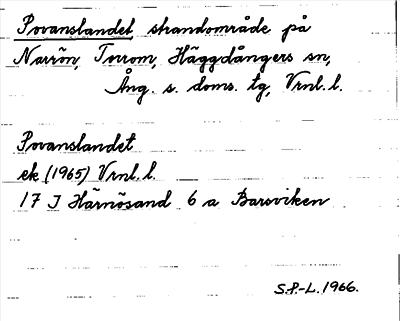 Povanslandet, strandområde på
Narrön, Torrom, Häggdångers sn,
Ång. s. doms. tg, Vrnl. l.
Povanslandet
ek (1965) Vrnl. l.
17 J Härnösand 6 a Barsviken
S.P.-L. 1966.